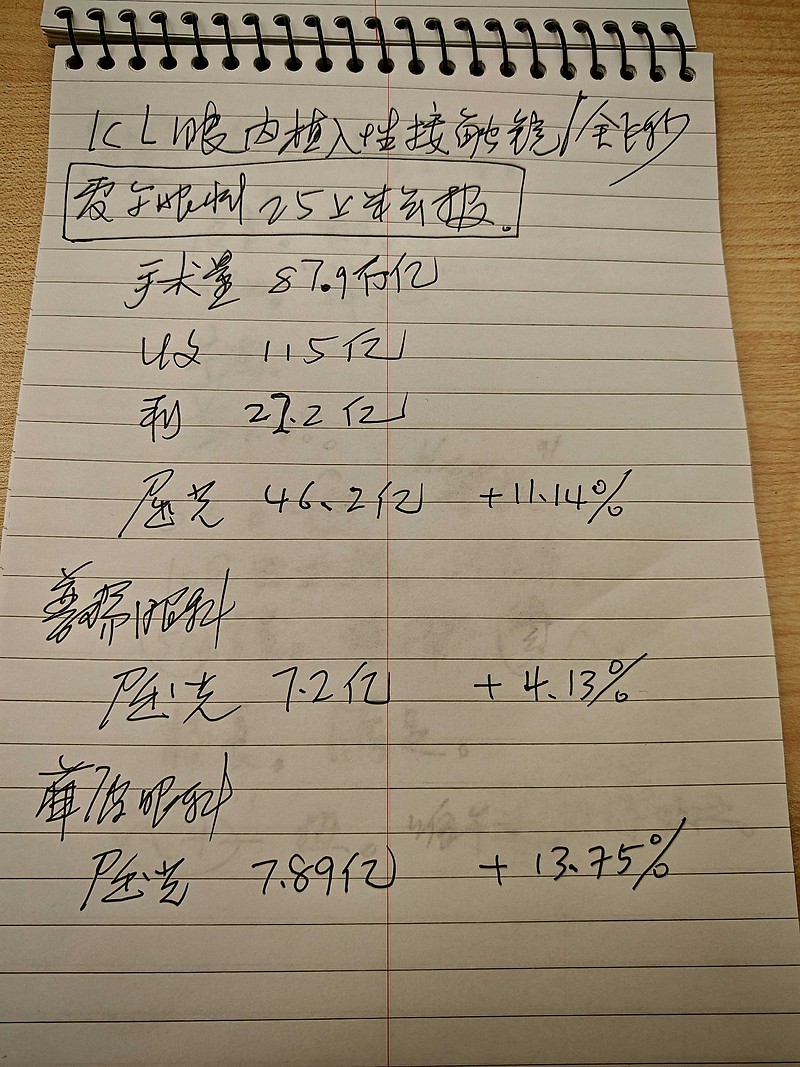 ICL眼内植入性接触镜/全飞秒
爱尔眼科25上半年报。
手术量 87.9万亿
收 115亿
利 27.2亿
屈光 46.2亿 +11.14%
普瑞眼科
屈光 7.2亿 +4.13%
华厦眼科
屈光 7.89亿 +13.75%